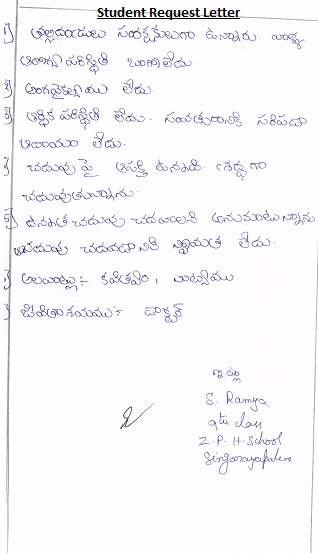 Student Request Letter
1) తల్లిదండ్రులు సంరక్షకులుగా ఉన్నారు. వాళ్ళ
ఆరోగ్య పరిస్థితి బాగాలేదు.
2) అంగవైకల్యము లేదు.
3) ఆర్థిక పరిస్థితి లేదు. సంవత్సరానికి సరిపడా
ఆదాయం లేదు.
) చదువు పై ఆసక్తి ఉన్నది. శ్రద్ధగా
చదువుతున్నాను.
5) ఉన్నత చదువు చదవాలని అనుకుంటున్నాను
చదువు చదవడానికి స్థోమత లేదు.
) అలవాట్లు :- కవిత్వం,
) జీవితాశయము :- డాక్టర్
ఇట్లు
S. Ramya
9th class
Z.P.H.School
Singarayapalem